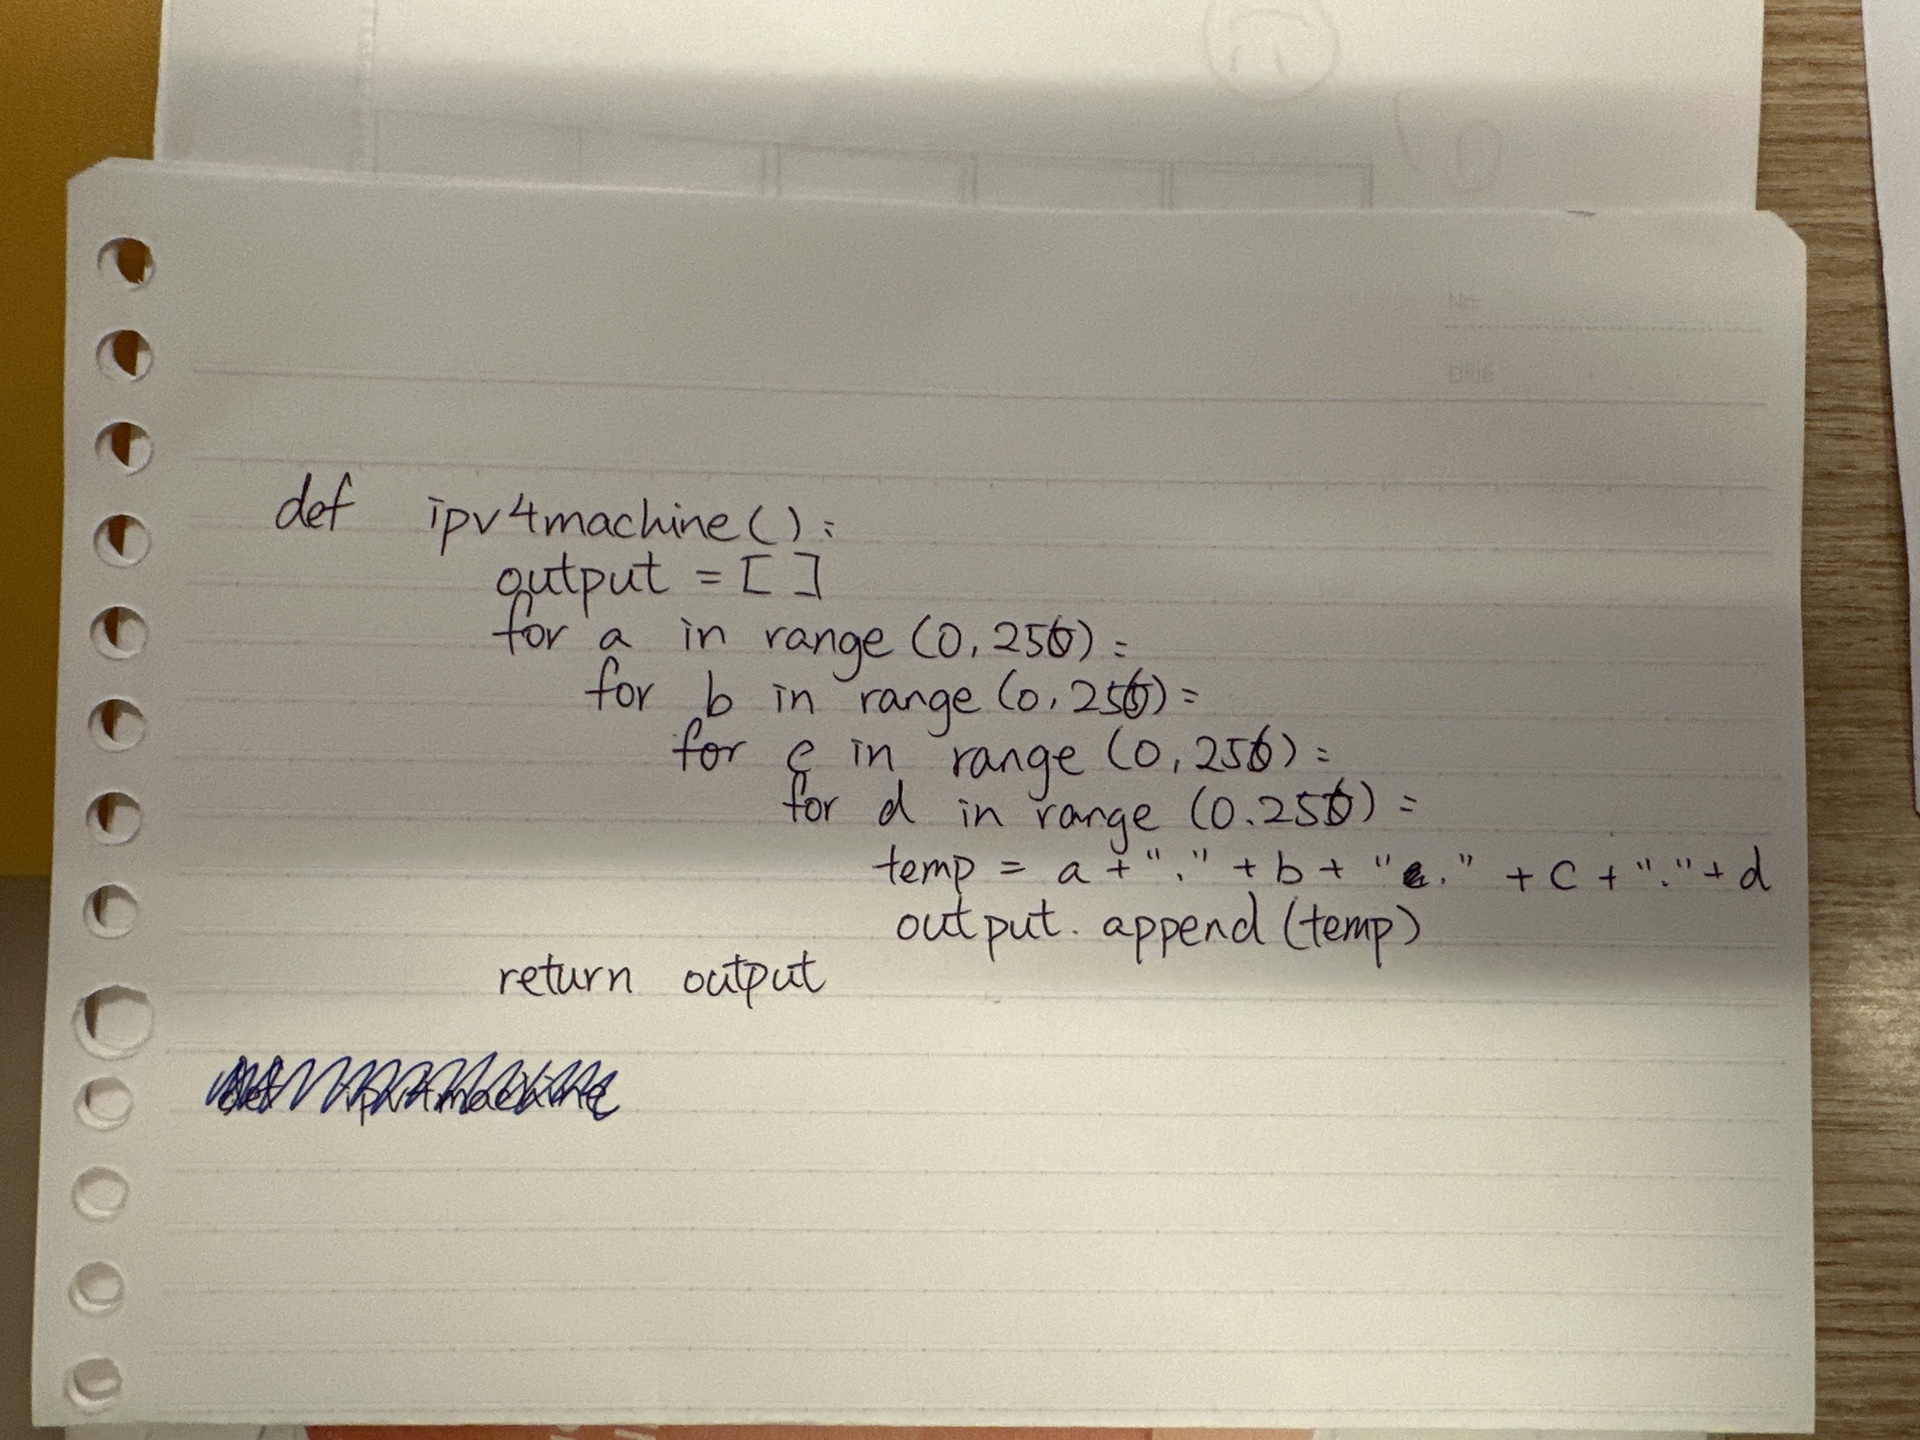 No.
Date
def ipv4machine():
output = []
for a in range (0,256):
for b in range (0,256):
for c in range (0,256):
for d in range (0.256):
temp = a + "." + b + "." + c + "." + d
output. append (temp)
return output